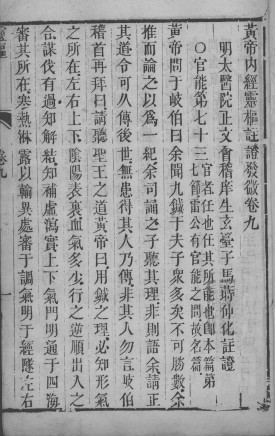 黃帝內經靈樞註證發微卷九
明太醫院正文會稽庠生玄臺子馬蒔仲化註證
○官能第七十三
官者任也任其所能也即本篇第
七節雷公有官能之問故名篇
黃帝問于岐伯曰余聞九鍼于夫子眾多矣不可勝數余
推而論之以為一紀余司誦之子聽其理非則語余請正
其道令可久傳後世無患得其人乃傳非其人勿言岐伯
稽首再拜曰請聽聖王之道黃帝曰用鍼之理必知形氣
之所在左右上下陰陽表裏血氣多少行之逆順出入之
合謀伐有過知解結知補虛瀉實上下氣門明通于四海
審其所在寒熱淋露以輸異處審于調氣明于經隧左右
卷九
一